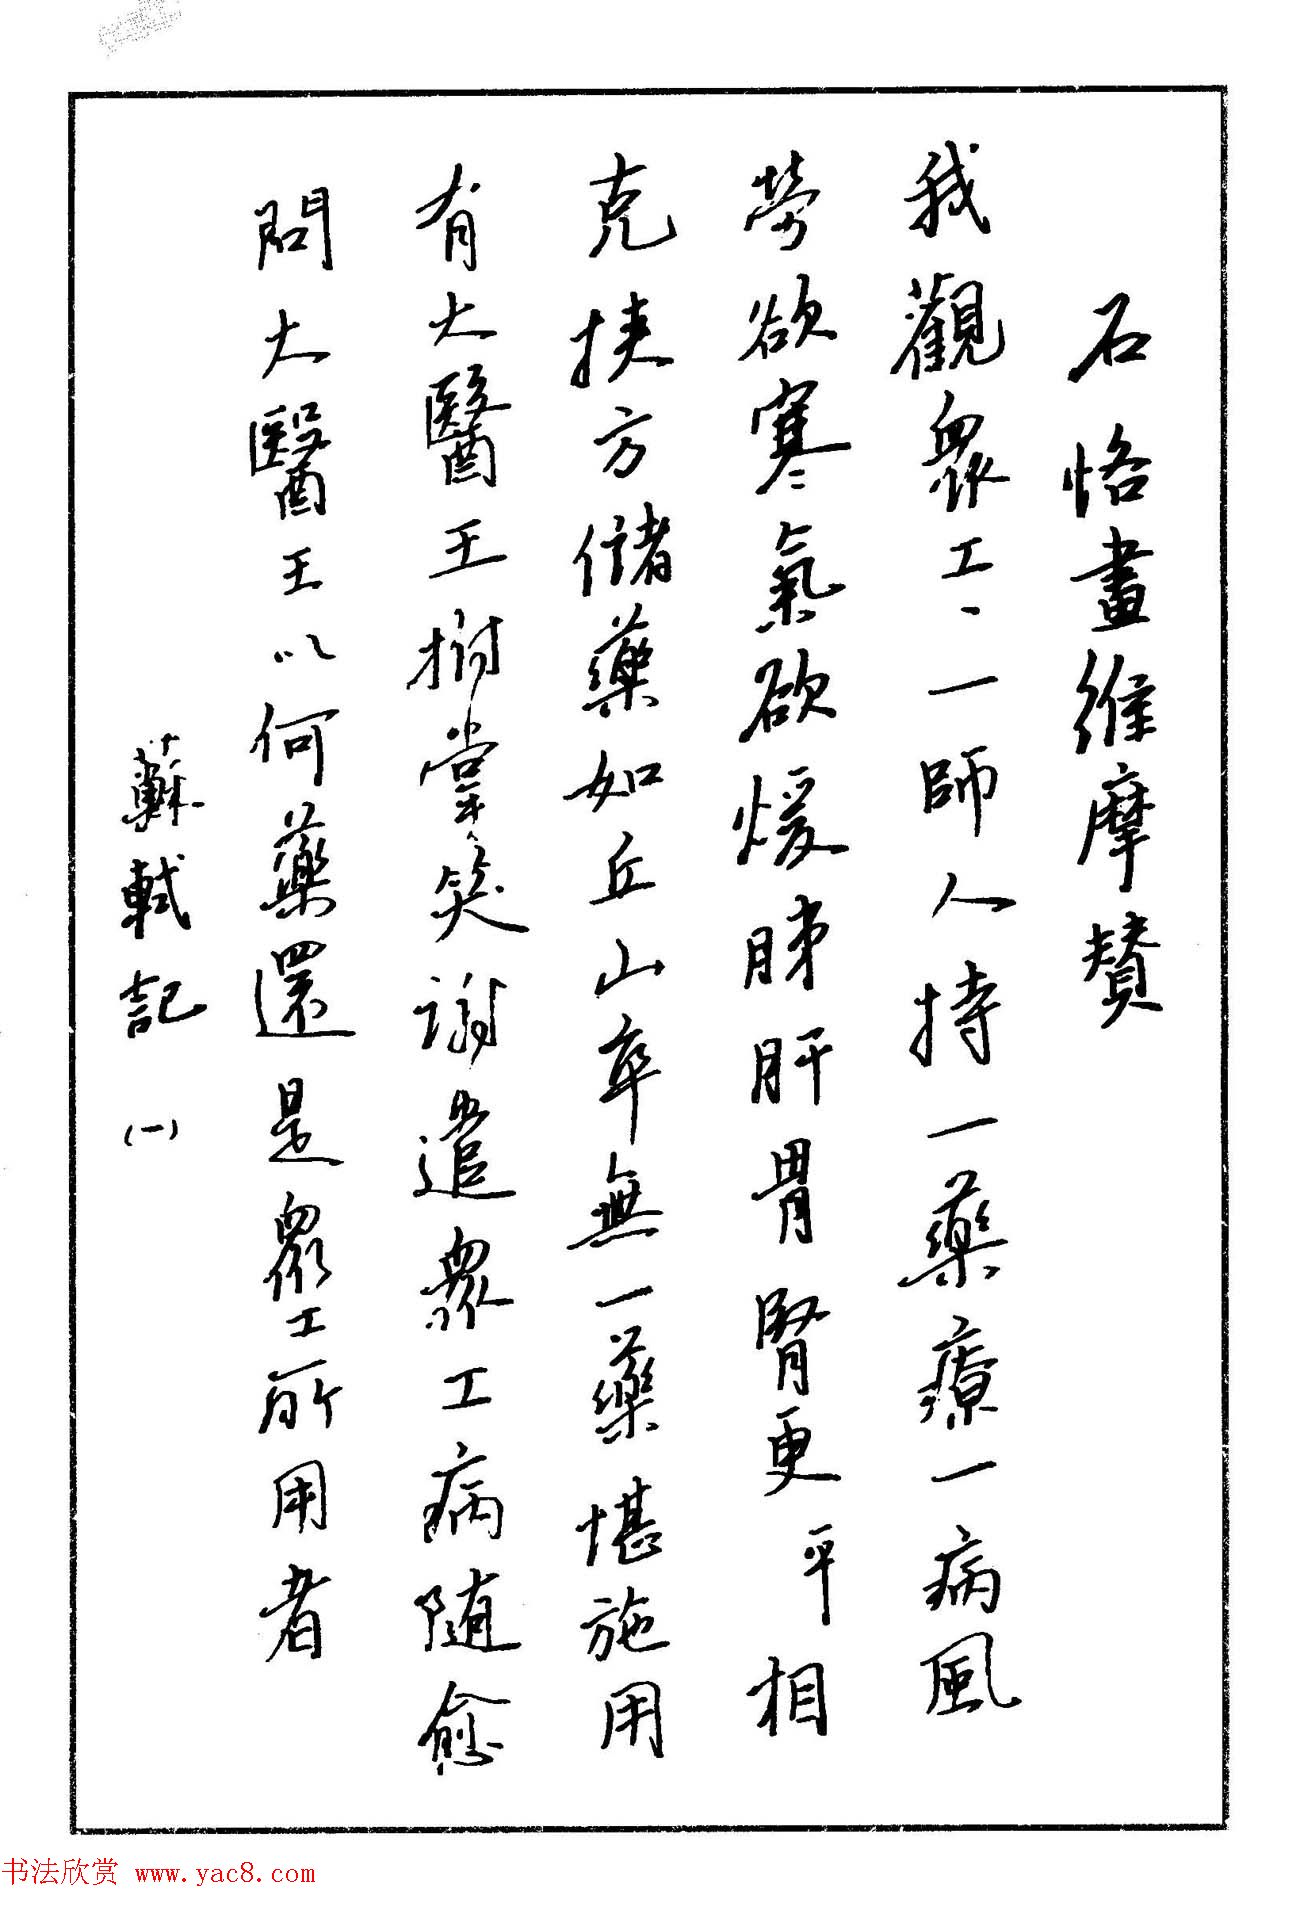 石恪畫維摩贊
我觀眾工〻一師人持一藥療一病風
勞欲寒氣欲煖肺肝胃腎更平相
克挾方儲藥如丘山卒無一藥堪施用
有大醫王拊掌笑謝遣眾工病随愈
問大醫王以何藥還是眾工所用者
蘇軾記 (一)
书法欣赏 www.yac8.com